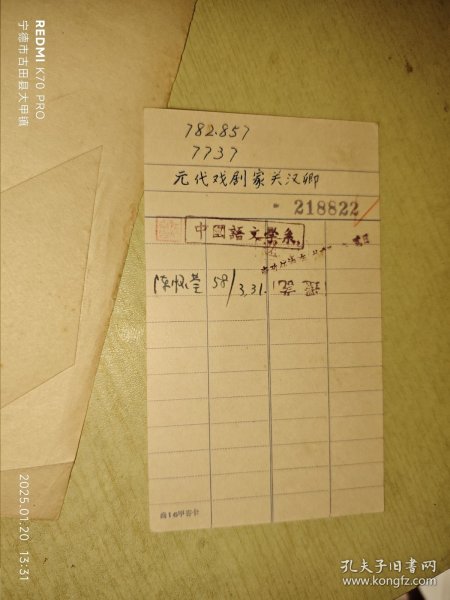 782.857
7737
元代戏剧家关汉卿
218822
中國語文學系
58/3.31.
REDMI K70 PRO
宁德市古田县大甲镇
2025.01.20 13:31
孔夫子旧书网
www.kongfz.com